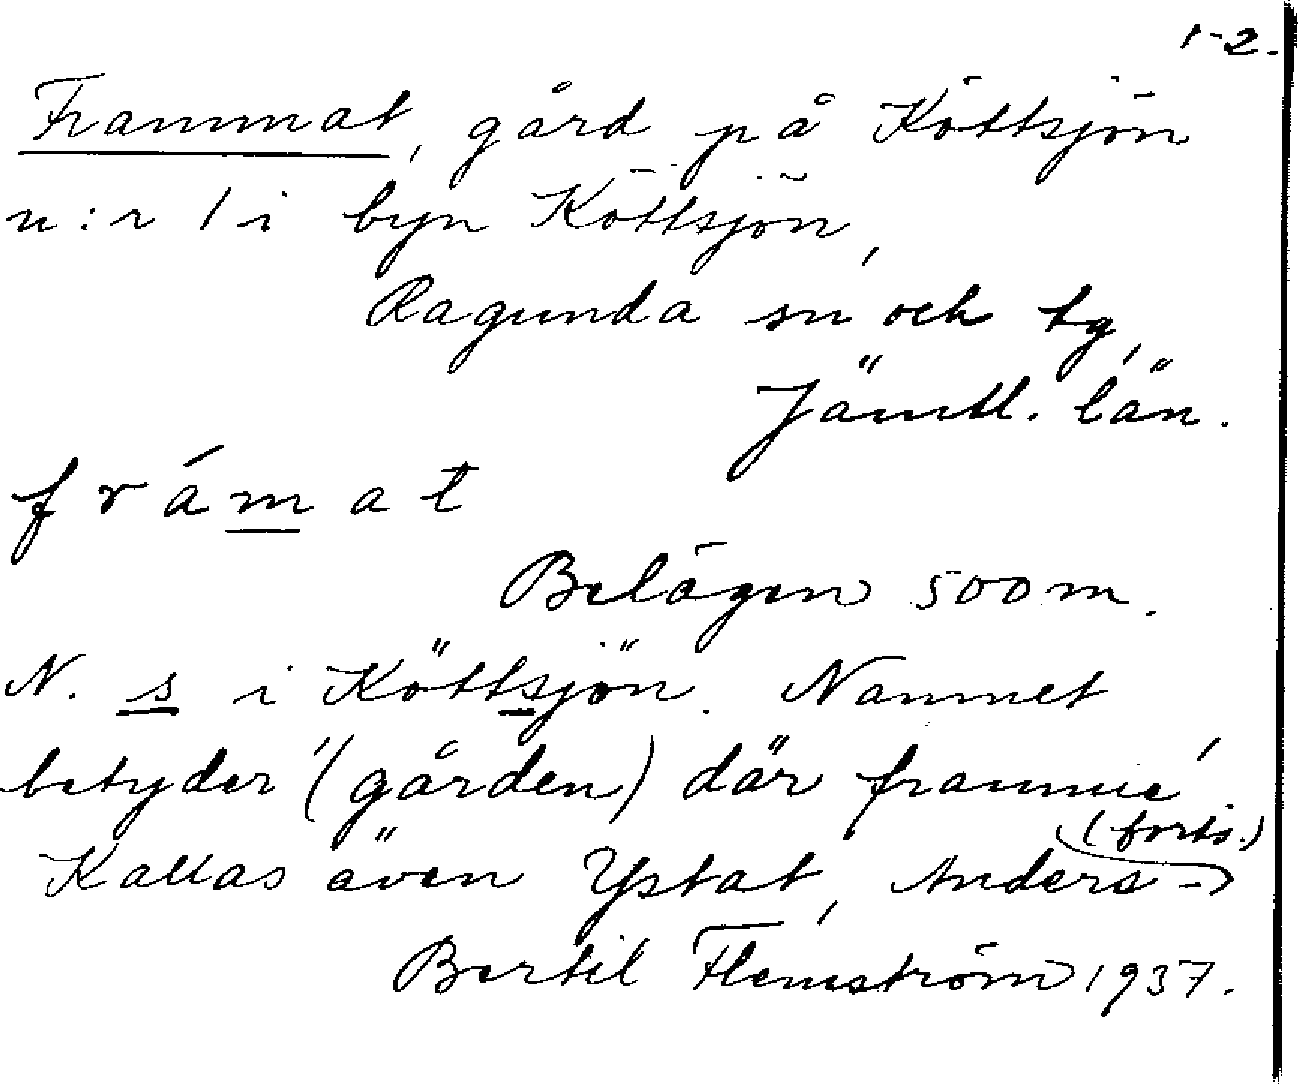 1-2.
Frammat, gård på Köttsjön
n:r 1 i byn Köttsjön,
Ragunda sn och tg,
Jämtl. län.
frámat
Belägen 500 m.
N. s i Köttsjön. Namnet
betyder '(gården) där framme'.
(forts.)
Kallas även Ystat, Anders-
Bertil Flemström 1937.